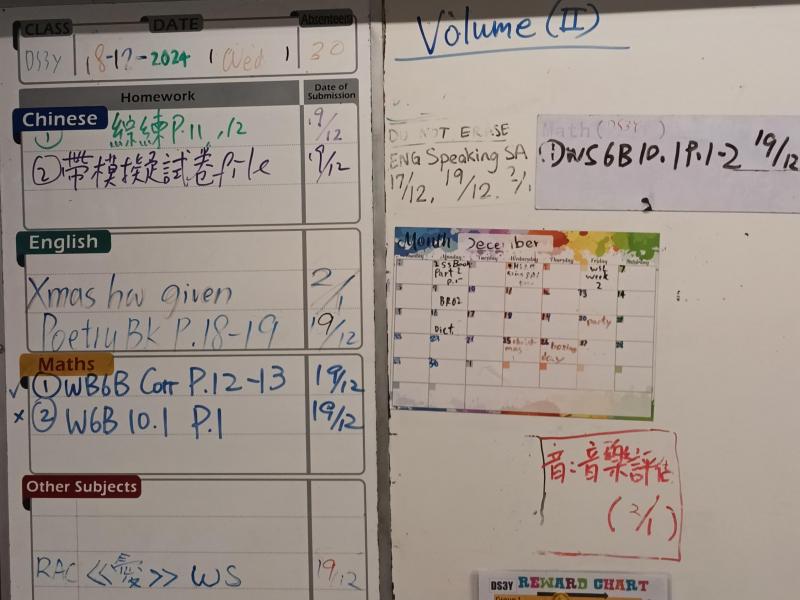 CLASS DATE Absentees
DS3Y 18-12-2024 (Wed) 30
Homework Date of Submission
Chinese
① 綜練 P.11, 12 19/12
② 帶模擬試卷 file 19/12
English
Xmas hw given 2/1
Poetry Bk P.18-19 19/12
Maths
✓ ① WB6B Corr P.12-13 19/12
× ② W6B 10.1 P.1 19/12
Other Subjects
RAC <<愛>> WS 19/12
Volume (II)
DO NOT ERASE
ENG Speaking SA
17/12, 19/12, 2/1
Math (DS3Y)
① WS 6B 10.1 P.1-2 19/12
Month December
Monday Tuesday Wednesday Thursday Friday Saturday
Part 2
7
BR02
13 14
Dict.
18 19 20 party
25 christmas 26 boxing day 27 28
30
音:音樂評估
(2/1)
DS3Y REWARD CHART
Group 1